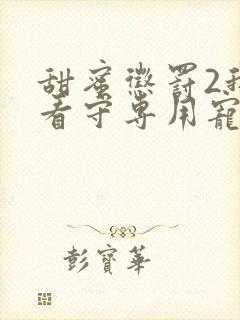 甜蜜懲罰2我
看守專用寵
彭寶華